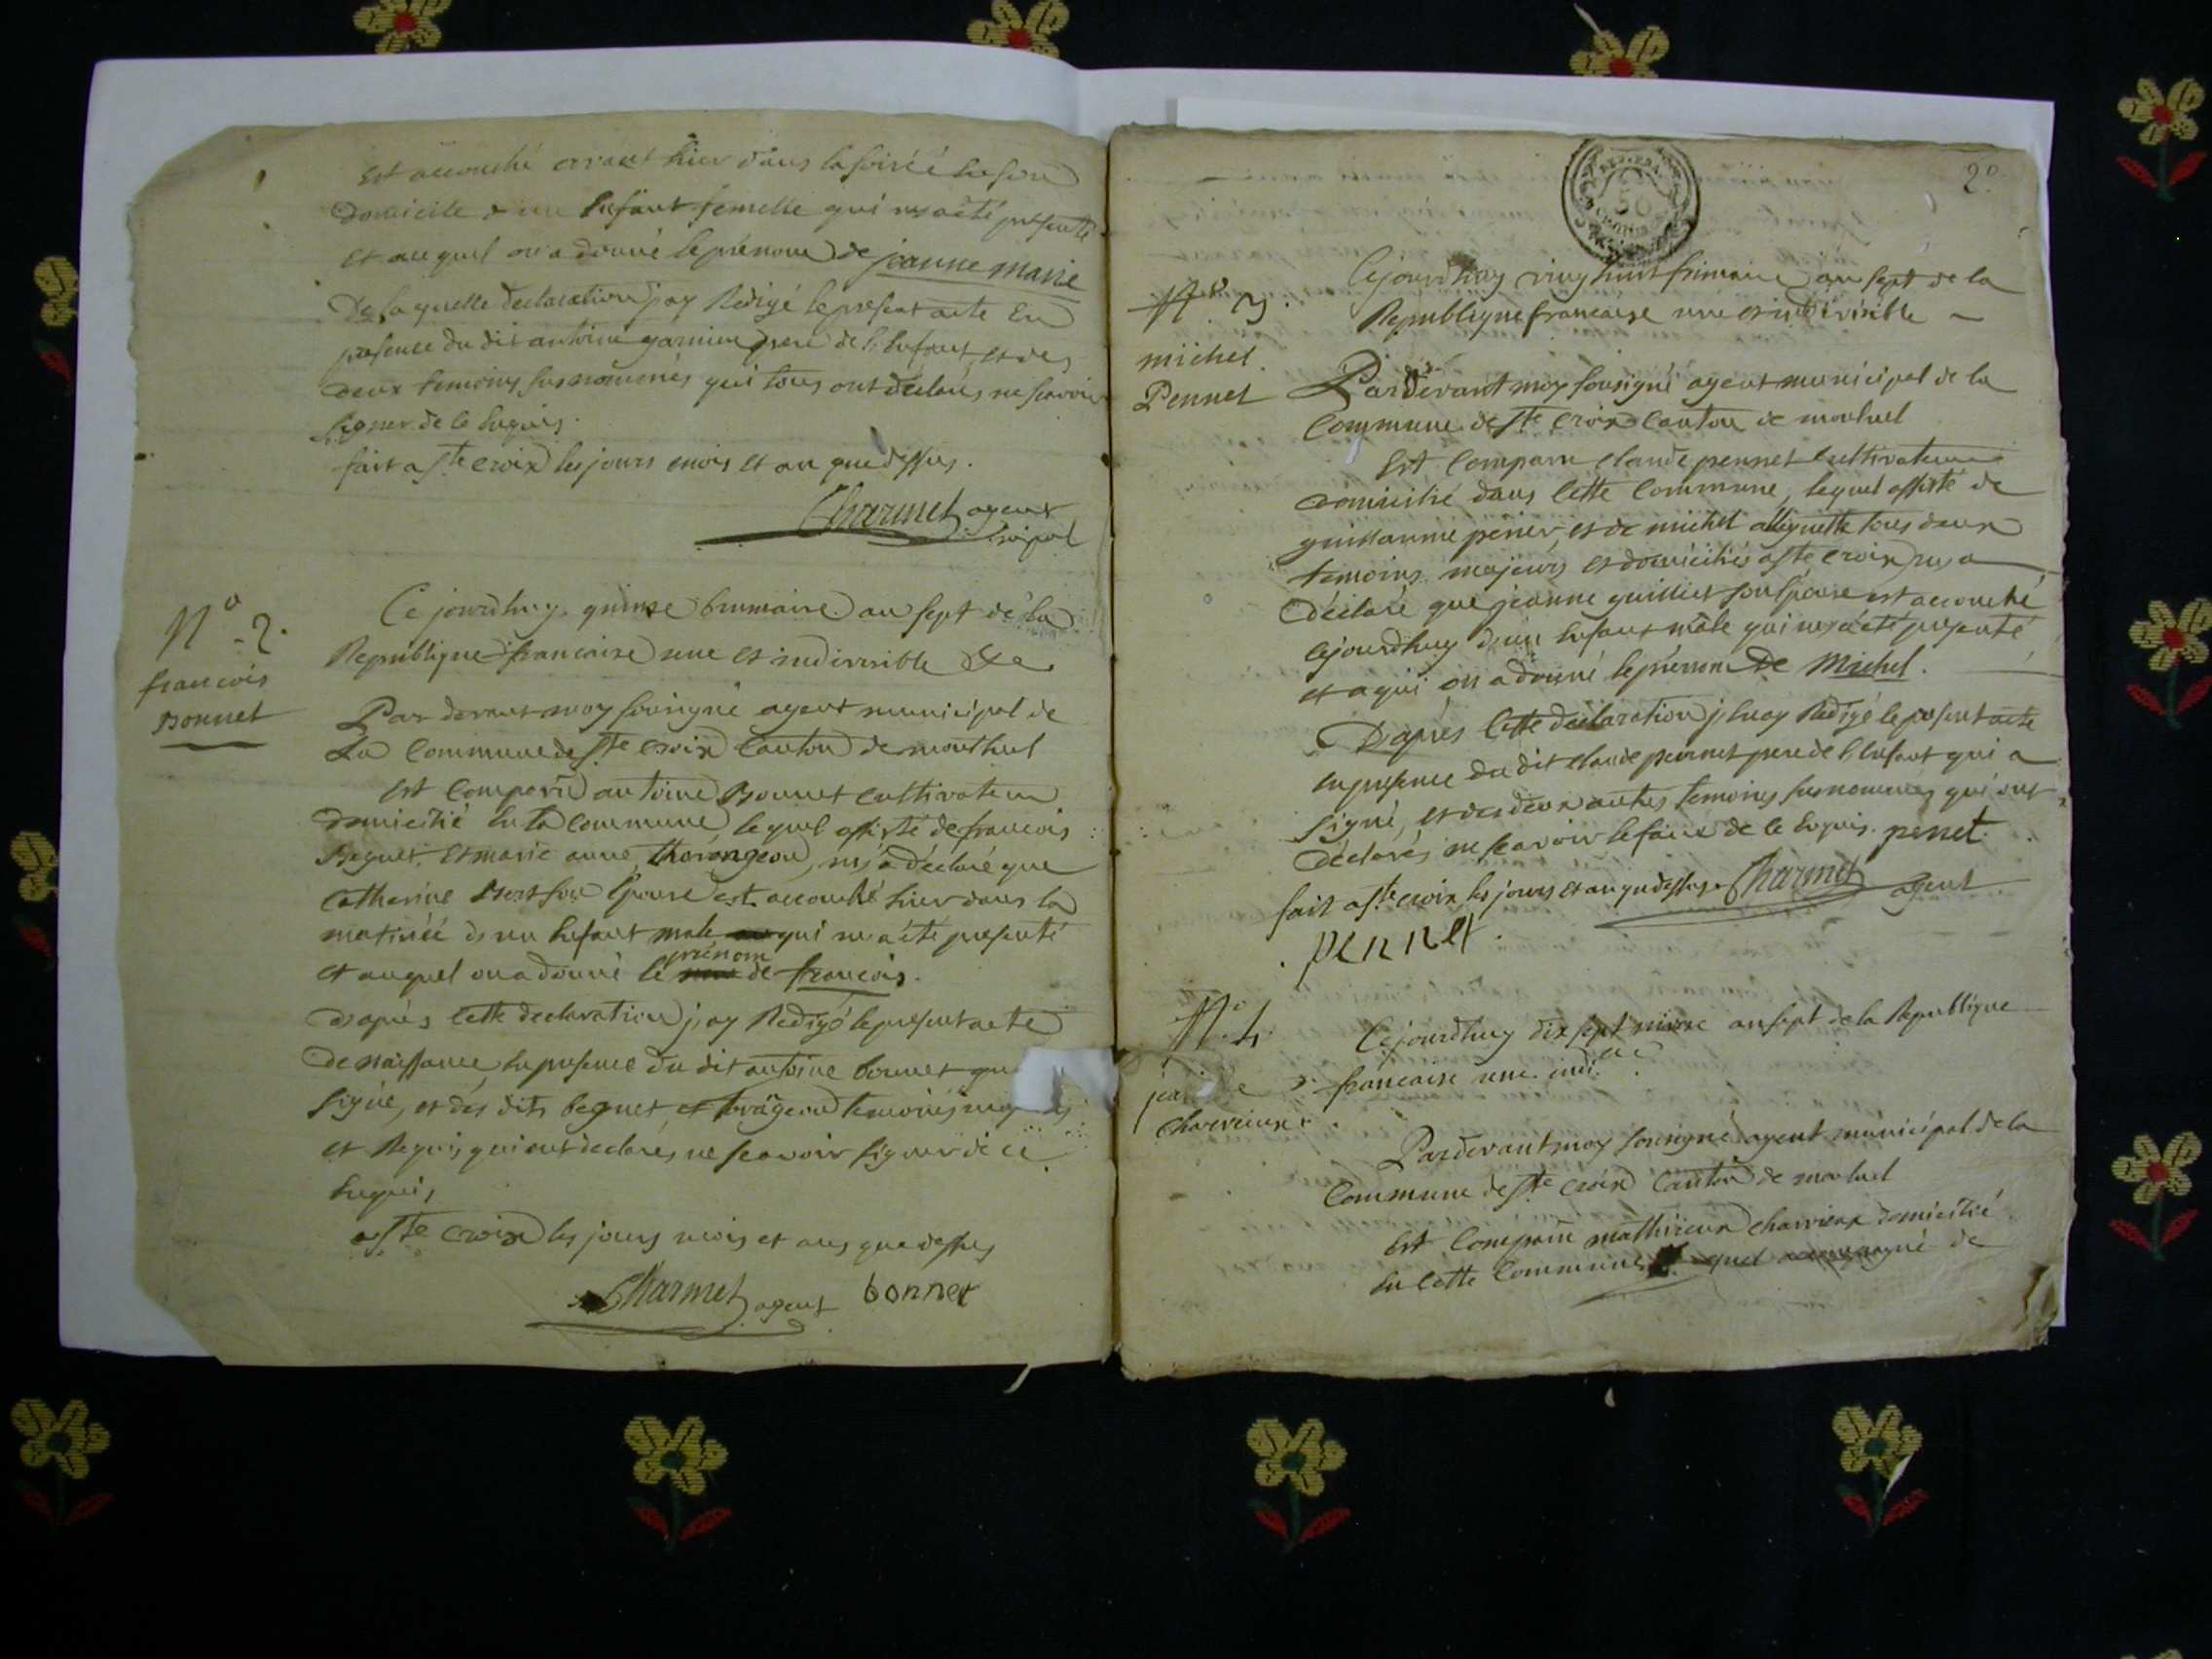 Est accouché avant hier dans la soirée en son
domicile d un Enfant femelle qui m'a été presenté
et auquel on a donné le prénom de jeanne marie
De laquelle declaration j'ay Redigé le present acte En
presence du dit antoine garnier pere de l'Enfant, et des
deux temoins susnommés qui tous ont déclarés ne scavoir
signer de ce Enquis.
fait a Ste croix les jours mois et an que dessus.
Charmet agent
N° 2.
francois
Bonnet
Ce jourdhuy quinze brumaire an sept de la
Republique francaise une et indivisible &a
Par devant moy sousigné agent municipal de
La Commune de Ste croix Canton de montluel
Est Comparu antoine Bonnet cultivateur
domicilié En la commune, lequel assisté de francois
Beguet, et marie anne thorangeon, m'a déclaré que
Catherine son Epouse est accouché hier dans la
matinée d'un Enfant male qui m'a été presenté
et auquel on a donné le prénom de francois.
D'aprés cette declaration j'ay Redigé le present acte
De naissance En presence du dit antoine bonnet
signé, et des dits beguet et temoins
et Requis qui ont declarés ne scavoir signer de ce
Enquis
a Ste Croix les jours mois et ans que dessus
Charmet agent bonnet
2e
N° 3.
michel
Pennet
Cejourdhuy vingt huit frimaire an sept de la
Republique francaise une et indivisible
Pardevant moy sousigné agent municipal de la
Commune de Ste croix Canton de montluel
Est Comparu claude pennet Cultivateur
domicilié dans cette Commune, lequel assisté de
guillaume perier, et de michel tous deux
temoins majeurs et domiciliés a Ste croix, m'a
déclaré que jeanne guilliet son Epouse est accouché
cejourdhuy d'un Enfant mâle qui m'a été presenté
et a qui on a donné le prénom De Michel.
D'aprés cette déclaration j'En ay Redigé le present acte
En presence du dit claude pennet pere de l'Enfant qui a
signé, et des deux autres temoins susnommés qui ont
déclarés ne scavoir le faire de ce Enquis. penet
fait a Ste croix les jours et an que dessus Charmet agent
pennet.
N° 4.
charvieux
Cejourdhuy dix sept nivose an sept de la Republique
francaise une indi.
Pardevant moy sousigné agent municipal de la
Commune de Ste croix Canton de montluel
Est Comparu mathieux charvieux domicilié
En cette Commune lequel accompagné de